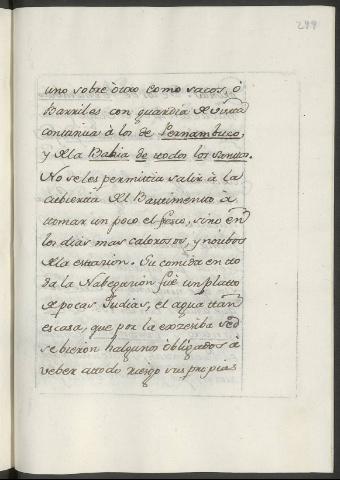 299
uno sobre òtro como sacos, ò
Barriles con guardia de vista
continua à los de Pernambuco,
y de la Bahia de todos los Santos.
No se les permittia salir à la
cubierta del Bastimento à
tomar un poco el fresco, sino en
los dias mas calorosos, y
de la estazion. Su comida en to
da la Nabegazion fuè un platto
de pocas Judias, el agua ttan
escasa, que por la exzesiba sed
se bieron halgunos òbligados à
veber a ttodo riesgo sus propias